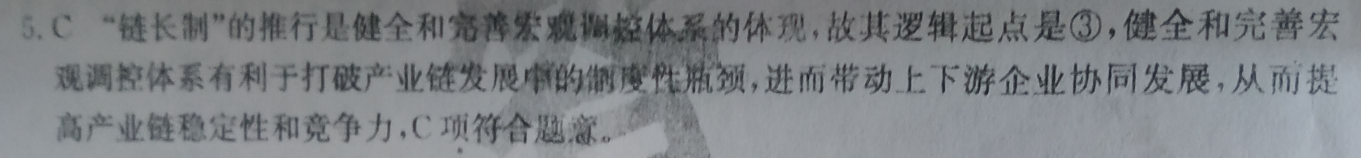 5. C “链长制”的推行是健全和完善宏观调控体系的体现，故其逻辑起点是③，健全和完善宏
观调控体系有利于打破产业链发展中的制度性瓶颈，进而带动上下游企业协同发展，从而提
高产业链稳定性和竞争力，C项符合题意。